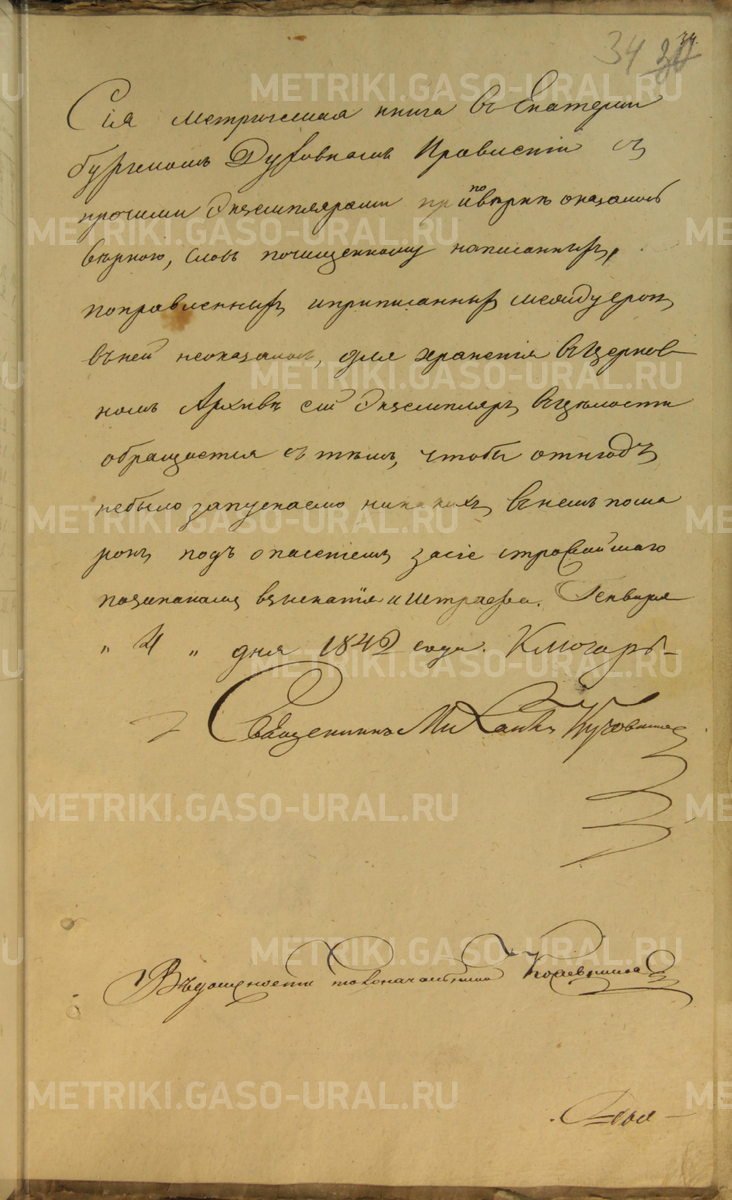 34 30 34.
Сія метрическая книга въ Екатерин
бургскомъ Духовномъ Правленіи съ
прочими Экземплярами по
повѣркѣ оказалась
вѣрною, словъ почищенному написанныхъ,
поправленныхъ и приписанныхъ между строкъ
въ ней неоказалось, для храненія въ Церков
номъ Архивѣ сей Экземпляръ въ цѣлости
обращается съ тѣмъ, чтобы отнюдь
небыло запускаемо никакихъ въ немъ пома
рокъ подъ опасеніемъ за сіе строжайшаго
по законамъ взысканія и штрафа. Генваря
„ 4 „ дня 1842 года. Ключарь
Священникъ Михаилъ
Въ должности
METRIKI.GASO-URAL.RU